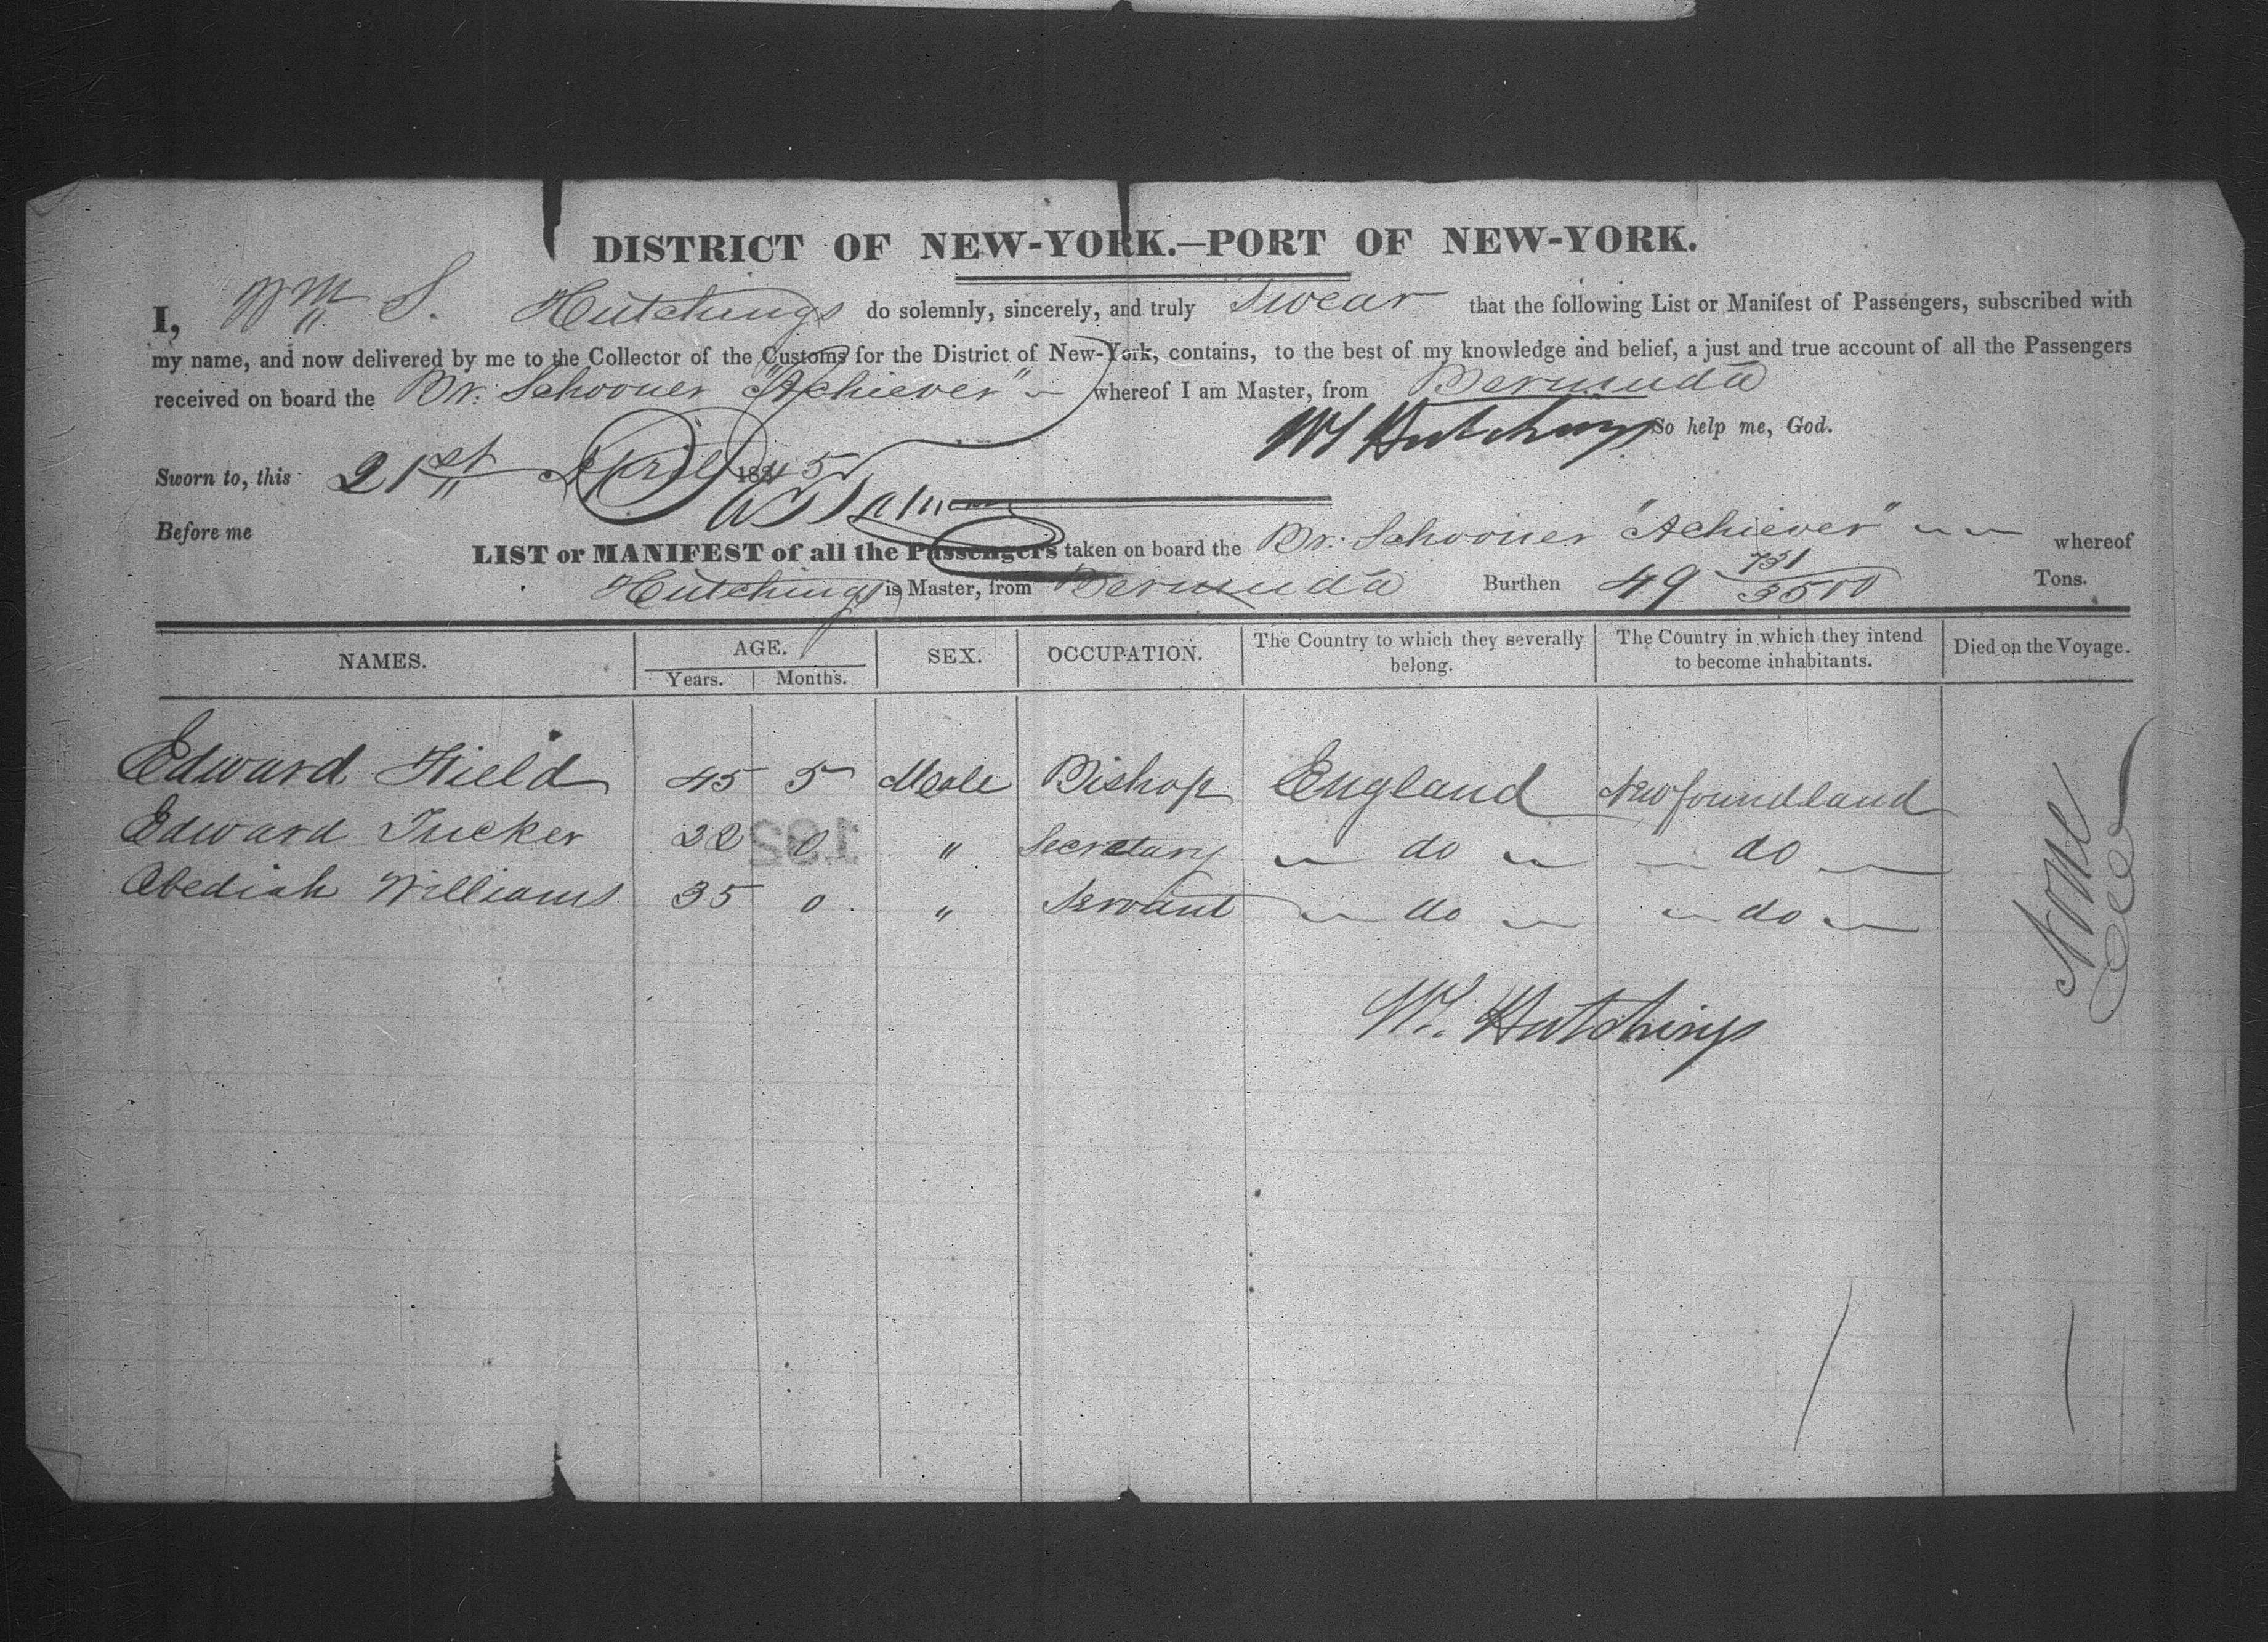 DISTRICT OF NEW-YORK.—PORT OF NEW-YORK.
I, Wm S. Hutchings do solemnly, sincerely, and truly Swear that the following List or Manifest of Passengers, subscribed with
my name, and now delivered by me to the Collector of the Customs for the District of New-York, contains, to the best of my knowledge and belief, a just and true account of all the Passengers
received on board the Br: Schooner "Achiever" whereof I am Master, from Bermuda
WS Hutchings So help me, God.
Sworn to, this 21st April 1845
Before me
LIST or MANIFEST of all the Passengers taken on board the Br: Schooner "Achiever" whereof
Hutchings is Master, from Bermuda Burthen 49 751/3500 Tons.
NAMES. AGE. SEX. OCCUPATION. The Country to which they severally belong. The Country in which they intend to become inhabitants. Died on the Voyage.
Years. Months.
Edward Field 45 5 Male Bishop England Newfoundland None
Edward Tucker 22 0 " Secretary do do
Obediah Williams 35 0 " Servant do do
192
W. Hutchings